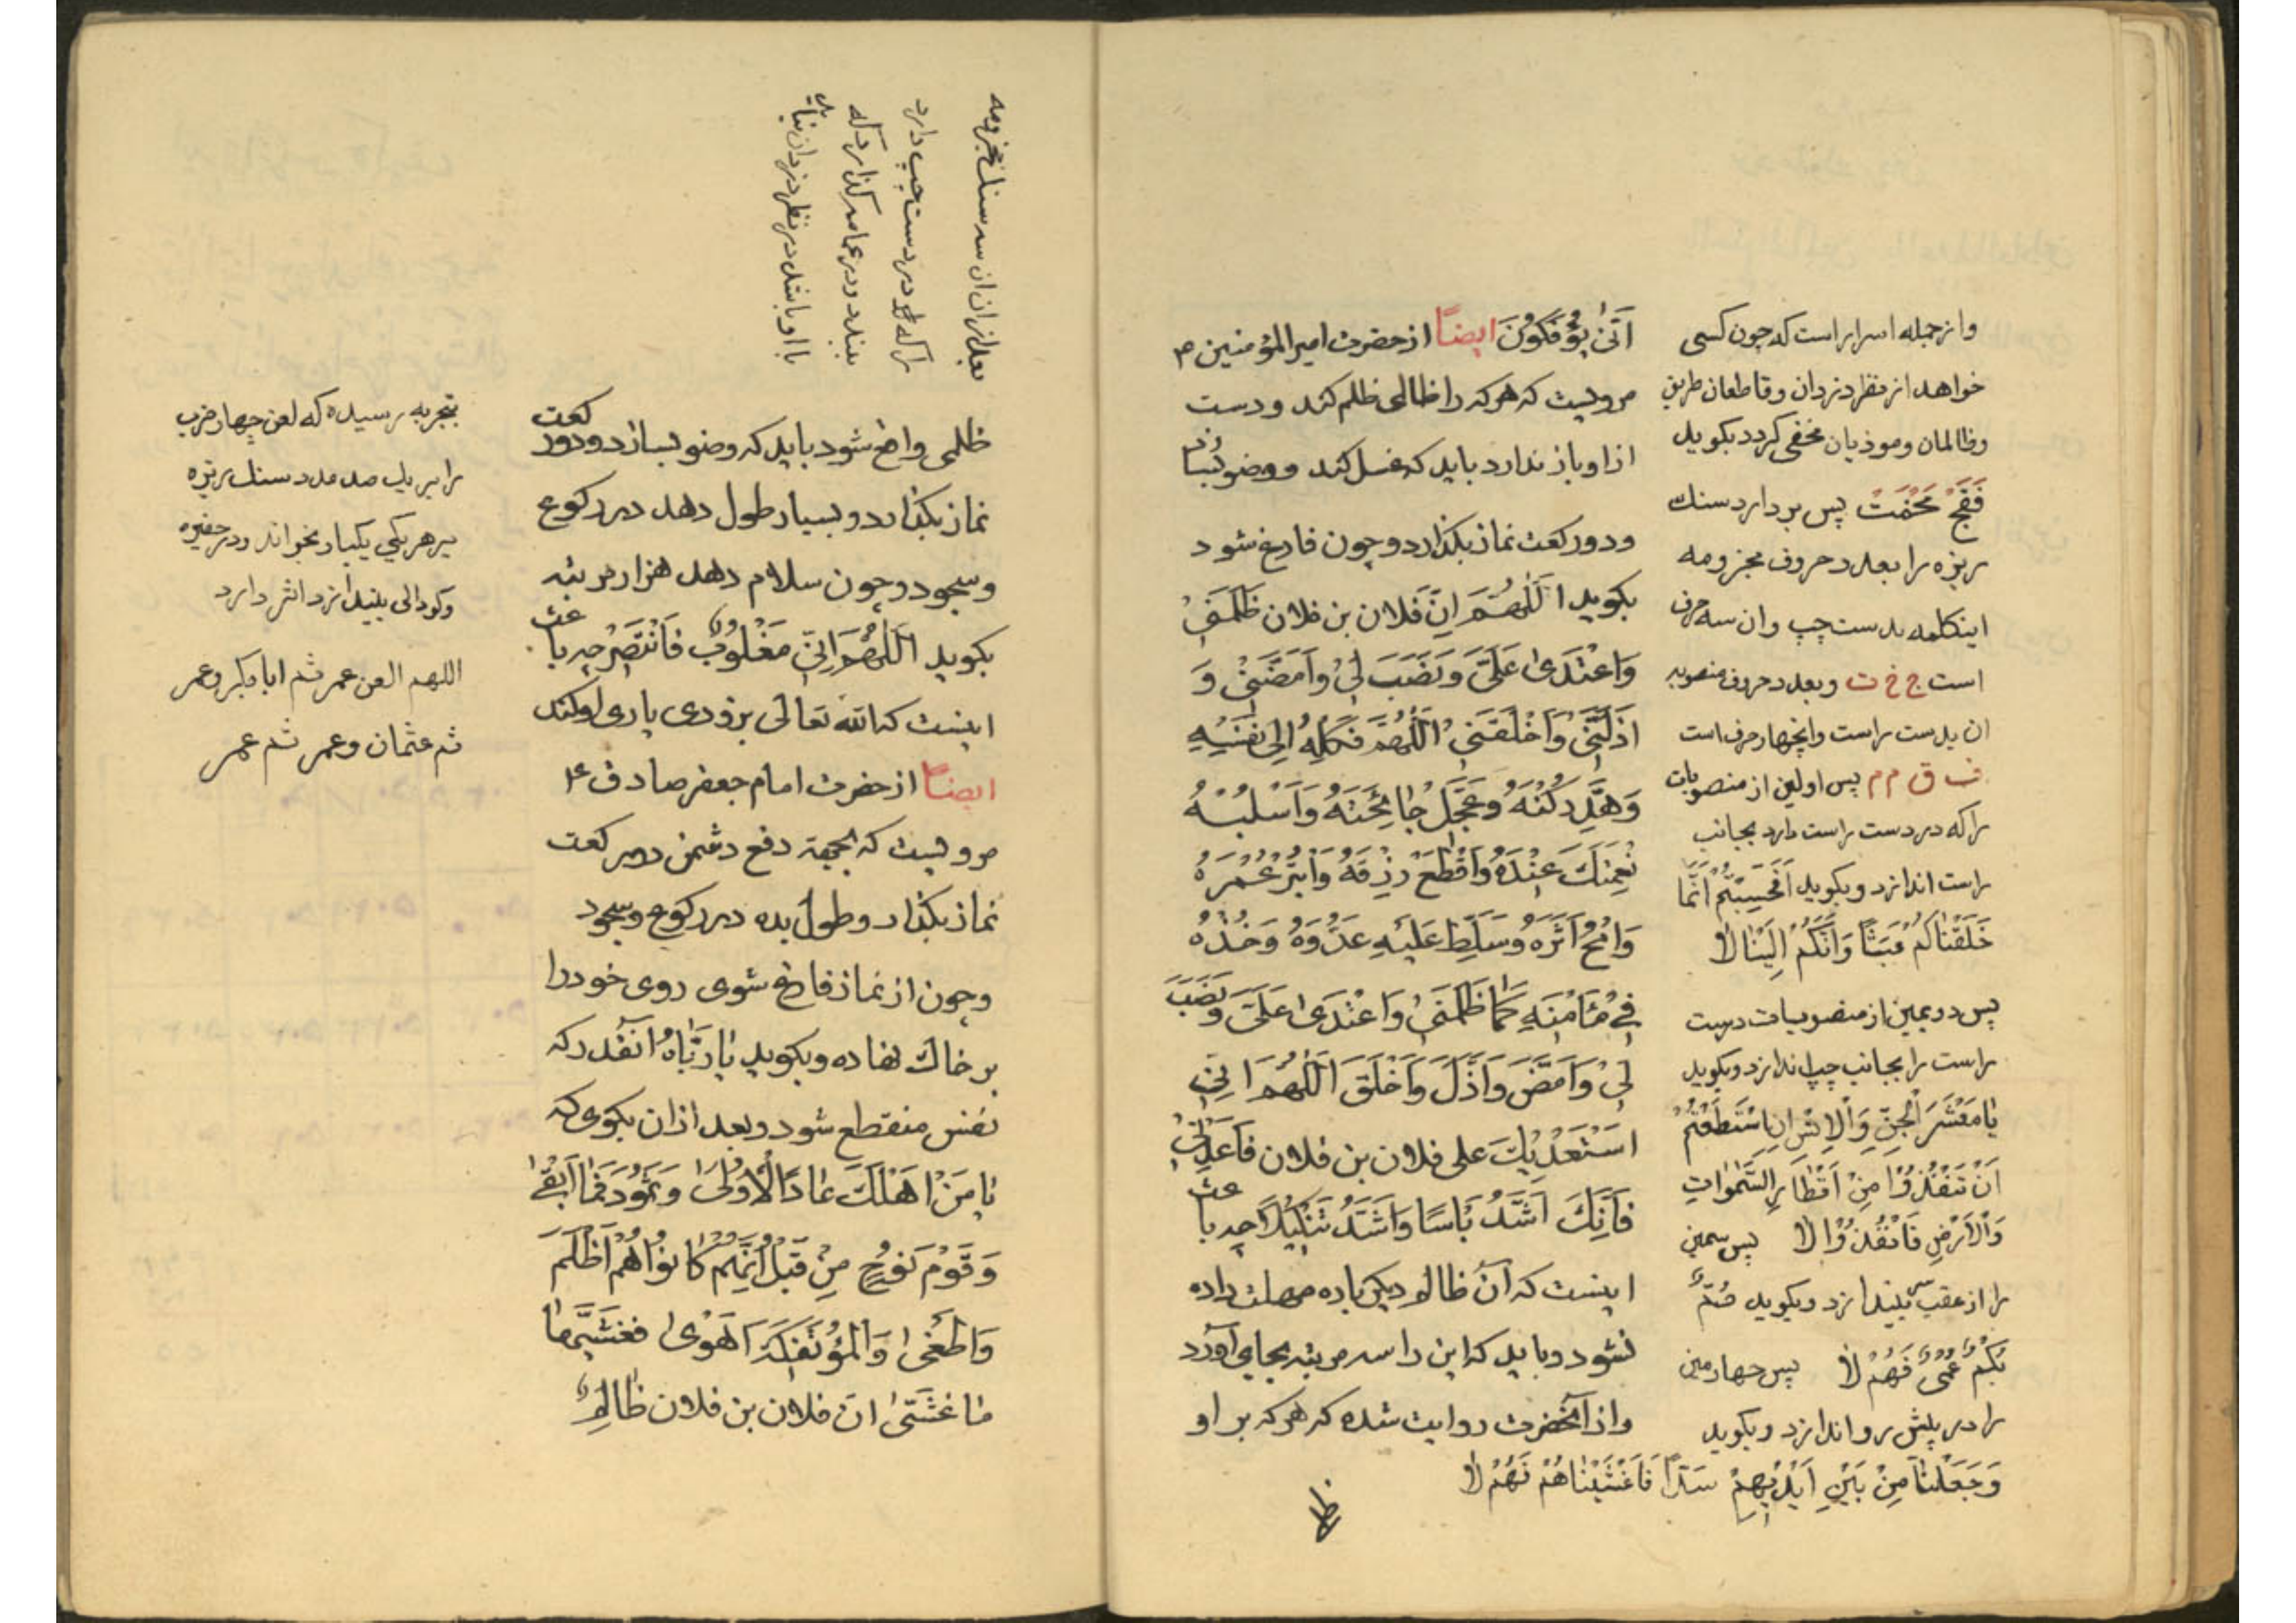 اَنّىٰ يُؤْفَكُونَ ايضاً از حضرت امير المؤمنين ۴
مرويست كه هركه را ظالمى ظلم كند و دست
از او باز ندارد بايد كه غسل كند و وضو بسازد
و دو ركعت نماز بكذارد و چون فارغ شود
بكويد اَللّٰهُمَّ اِنَّ فلان بن فلان ظَلَمَنِىْ
وَاعْتَدىٰ عَلَىَّ وَنَصَبَ لِىْ وَاَمَضَّنِىْ وَ
اَذَلَّنِىْ وَاَخْلَقَنِىْ اَللّٰهُمَّ فَكِلْهُ اِلىٰ نَفْسِهِ
وَهَدِّ رُكْنَهُ وَعَجِّلْ جٰائِحَتَهُ وَاَسْلُبْهُ
نِعْمَتَكَ عِنْدَهُ وَاقْطَعْ رِزْقَهُ وَابْتُرْ عُمْرَهُ
وَامْحُ اَثَرَهُ وَسَلِّطْ عَلَيْهِ عَدُوَّهُ وَخُذْهُ
فِى مَأمَنِهِ كَمٰا ظَلَمَنِىْ وَاعْتَدىٰ عَلَىَّ وَنَصَبَ
لِىْ وَاَمَضَّ وَاَذَلَّ وَاَخْلَقَ اَللّٰهُمَّ اِنّى
اَسْتَعْدِيْكَ على فلان بن فلان فَاَعِدْنِىْ
فَاِنَّكَ اَشَدُّ بَاْسًا وَاَشَدُّ تَنْكِيْلاً
اينست كه آن ظالم ديكر باره مهلت داده
نشود و بايد كه اين را سه مرتبه بجاى آورد
و از آنحضرت روايت شده كه هركه بر او
ظل
و از جمله اسرار است كه چون كسى
خواهد از نظر دزدان و قاطعان طريق
و ظالمان و موذيان مخفى كردد بكويد
فَقَجْ مَخْمَتْ پس بردارد سنك
ريزه را بعدد حروف مجزومه
اينكلمه بدست چپ و ان سه حرف
است ج خ ت و بعدد حروف منصوبه
ان بدست راست و انچهار حرف است
ف ق م م پس اولين از منصوبات
را كه در دست راست دارد بجانب
راست اندازد و بكويد اَفَحَسِبْتُمْ اَنَّمٰا
خَلَقْنٰاكُمْ عَبَثًا وَاَنَّكُمْ اِلَيْنٰا لاٰ
پس دويمين از منصوبات دست
راست را بجانب چپ اندازد و بكويد
يٰا مَعْشَرَ الْجِنِّ وَالْاِنْسِ اِنِ اسْتَطَعْتُمْ
اَنْ تَنْفُذُوْا مِنْ اَقْطٰارِ السَّمٰوٰاتِ
وَالْاَرْضِ فَانْفُذُوْا لاٰ پس سيمين
را از عقب سر بيندازد و بكويد صُمٌّ
بُكْمٌ عُمْىٌ فَهُمْ لاٰ پس چهارمين
را در پيش رو اندازد و بكويد
وَجَعَلْنٰا مِنْ بَيْنِ اَيْدِيْهِمْ سَدًّا فَاَغْشَيْنٰاهُمْ فَهُمْ لاٰ
بعد از ان ان سه سنك مجزومه
را كه در دست چپ دارد
ببندد و در عمامه كذارد كه
با او باشد در نظر دزدان نيايد
ظلمى واقع شود بايد كه وضو بسازد و دو ركعت
نماز بكذارد و بسيار طول دهد در ركوع
و سجود و چون سلام دهد هزار مرتبه
بكويد اَللّٰهُمَّ اِنّى مَغْلُوْبٌ فَانْتَصِرْ
اينست كه الله تعالى بزودى يارى او كند
ايضاً از حضرت امام جعفر صادق ۴
مرويست كه بجهة دفع دشمن دو ركعت
نماز بكذار و طول بده در ركوع و سجود
و چون از نماز فارغ شوى روى خود را
بر خاك نهاده و بكويد يٰا رَبّٰاهُ آنقدر كه
نفس منقطع شود و بعد از ان بكوى كه
يٰا مَنْ اَهْلَكَ عٰادًا الْاُوْلىٰ وَثَمُوْدَ فَمٰا اَبْقىٰ
وَقَوْمَ نُوْحٍ مِنْ قَبْلُ اِنَّهُمْ كٰانُوْا هُمْ اَظْلَمَ
وَاَطْغىٰ وَالْمُؤْتَفِكَةَ اَهْوىٰ فَغَشّٰيهٰا
مٰا غَشّىٰ انّ فلان بن فلان ظٰالِمٌ
بتجربه رسيده كه لعن چهار ضرب
را بر يك صد عدد سنك ريزه
بر هر يكى يكبار بخواند و در حفيره
و كودالى بيندازد اثر دارد
اللهم العن عمر ثم ابا بكر و عمر
ثم عثمان و عمر ثم عمر